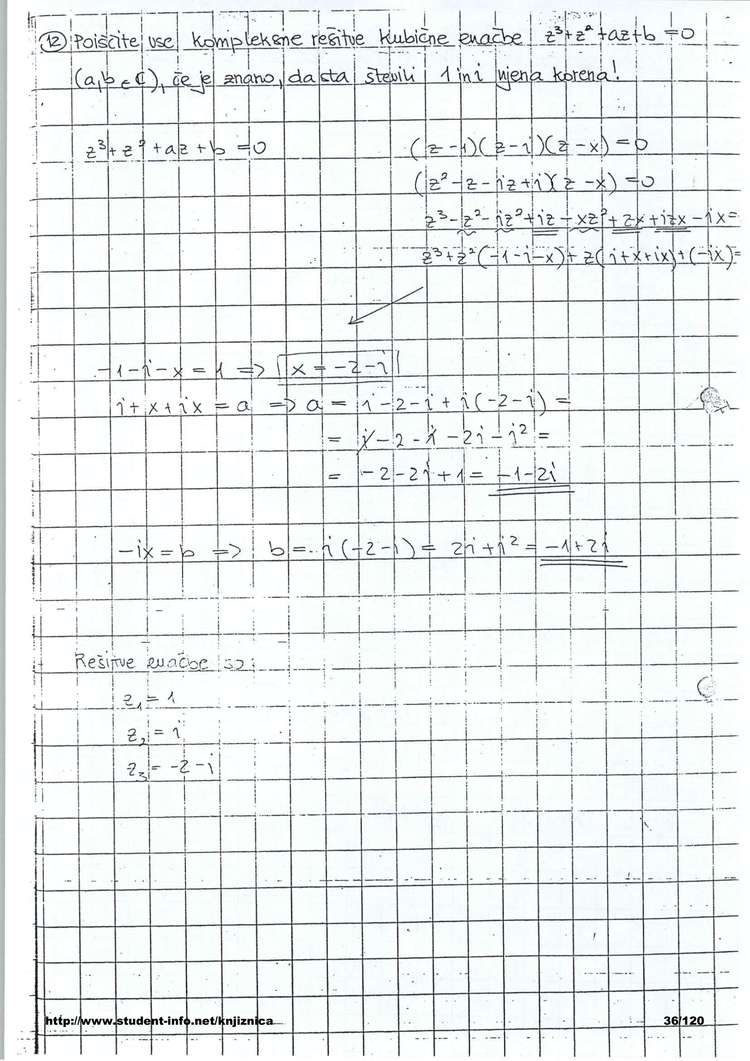 12 Poiščite vse kompleksne rešitve kubične enačbe z³+z²+az+b=0
(a,b∈ℂ), če je znano, da sta števili 1 in i njena korena!
z³+z²+az+b=0
(z-1)(z-i)(z-x)=0
(z²-z-iz+i)(z-x)=0
z³-z²-iz²+iz-xz²+zx+izx-ix=
z³+z²(-1-i-x)+z(i+x+ix)+(-ix)=
-1-i-x=1 => x=-2-i
i+x+ix=a => a = i-2-i+i(-2-i)=
= i-2-i-2i-i²=
= -2-2i+1= -1-2i
-ix=b => b=-i(-2-i)= 2i+i²= -1+2i
Rešitve enačbe so:
z₁=1
z₂=i
z₃=-2-i
http://www.student-info.net/knjiznica
36/120